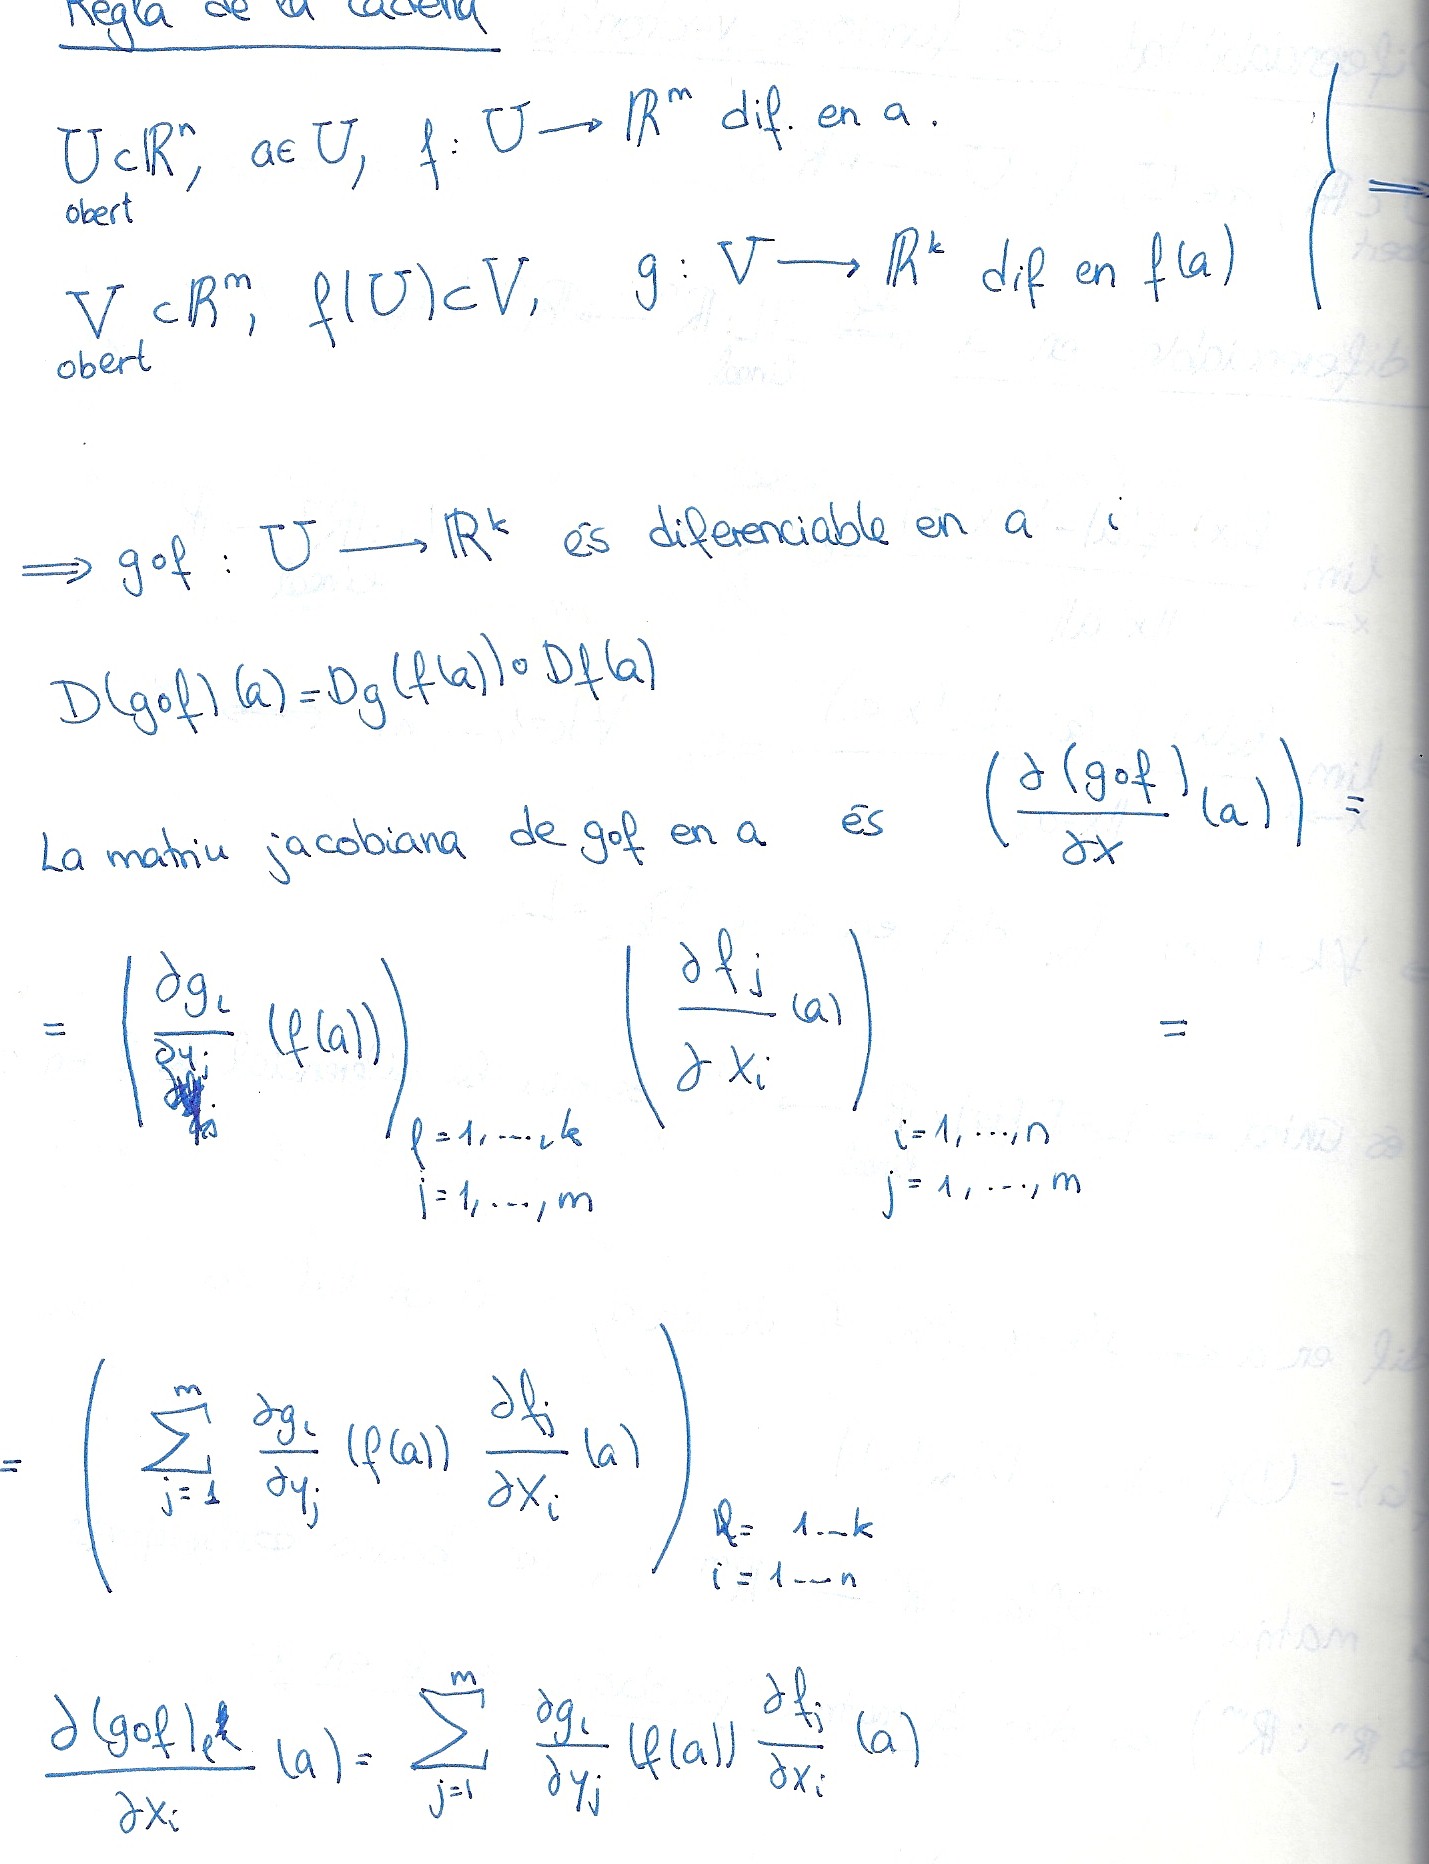 Regla de la cadena
U ⊂ ℝⁿ, a ∈ U, f : U ⟶ ℝᵐ dif. en a.
obert
V ⊂ ℝᵐ, f(U) ⊂ V, g : V ⟶ ℝᵏ dif en f(a)
obert
⟹
⟹ g∘f : U ⟶ ℝᵏ és diferenciable en a i
D(g∘f)(a) = Dg(f(a)) ∘ Df(a)
La matriu jacobiana de g∘f en a és (∂(g∘f)/∂x (a)) =
= (∂gₗ/∂yⱼ (f(a))) ℓ = 1, ..., k j = 1, ..., m (∂fⱼ/∂xᵢ (a)) i = 1, ..., n j = 1, ..., m =
= (∑_{j=1}^{m} ∂gₗ/∂yⱼ (f(a)) ∂fⱼ/∂xᵢ (a)) ℓ = 1...k i = 1...n
∂(g∘f)ₗ/∂xᵢ (a) = ∑_{j=1}^{m} ∂gₗ/∂yⱼ (f(a)) ∂fⱼ/∂xᵢ (a)